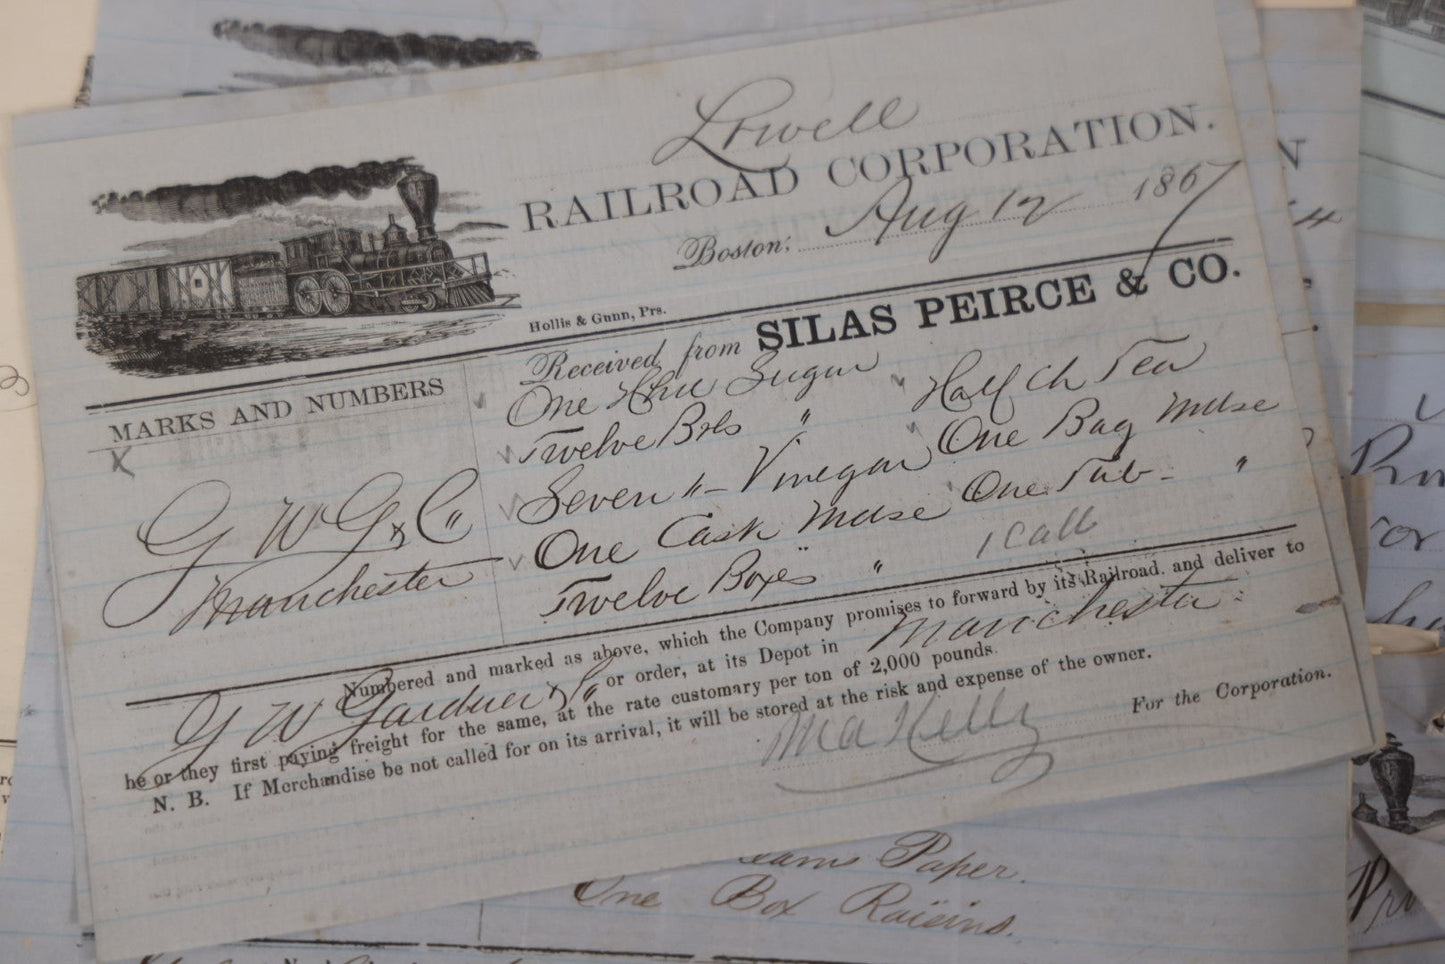 Lowell
RAILROAD CORPORATION.
Boston, Aug 12 1867
Hollis & Gunn, Prs.
Received from SILAS PEIRCE & CO.
MARKS AND NUMBERS
X
G W G & Co
Manchester
One Hhd Sugar
Twelve Bbls "
Seven "- Vinegar
One Cask Mdse
Twelve Boxes "
Half Ch Tea
One Bag Mdse
One Tub - "
Numbered and marked as above, which the Company promises to forward by its Railroad, and deliver to
G W Gardner & Co or order, at its Depot in Manchester
he or they first paying freight for the same, at the rate customary per ton of 2,000 pounds.
N. B. If Merchandise be not called for on its arrival, it will be stored at the risk and expense of the owner.
Kelly For the Corporation.
Paper.
One Box Raisins.